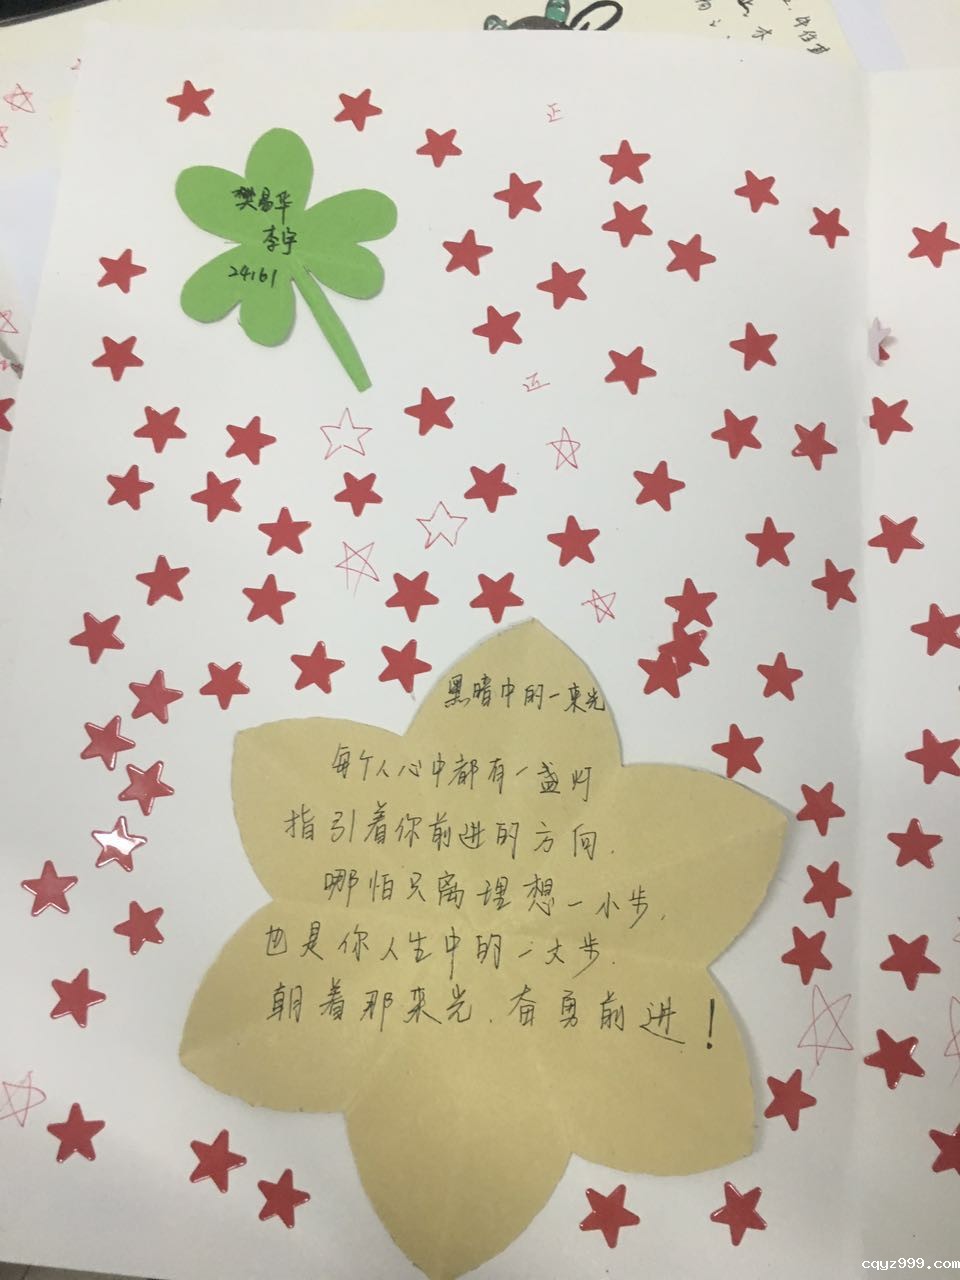 樊易华
李宇
24161
正
正
黑暗中的一束光
每个人心中都有一盏灯
指引着你前进的方向.
哪怕只离理想一小步,
也是你人生中的一大步.
朝着那束光.奋勇前进!
cqyz999.com